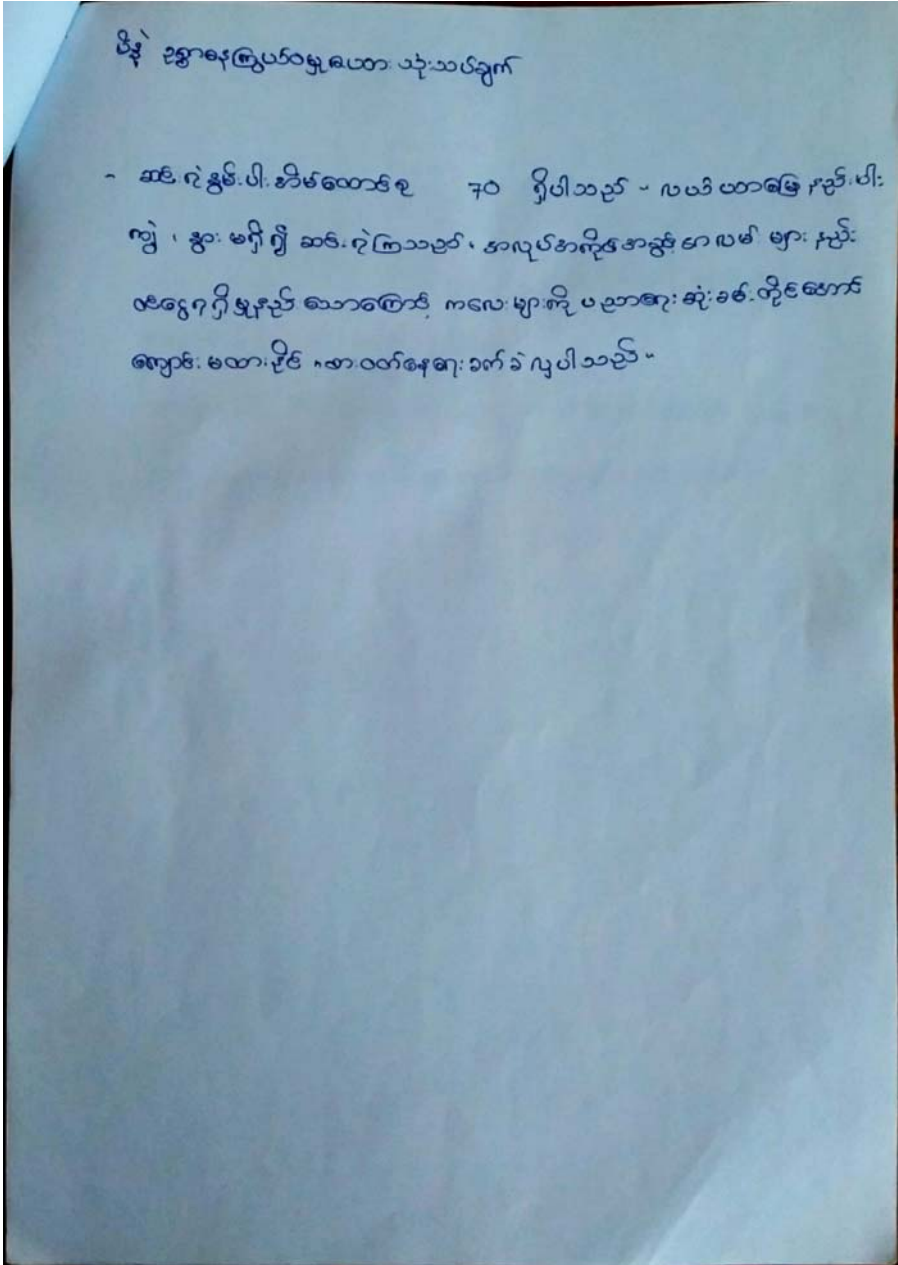 မိန့် ဥစ္စာဓနကြွယ်ဝမှုဇယား သုံးသပ်ချက်
- ဆင်းရဲနွမ်းပါး အိမ်ထောင်စု 70 ရှိပါသည် ။ လယ်ယာမြေ နည်းပါး
ကျွဲ ၊ နွား မရှိ၍ ဆင်းရဲကြသည် ၊ အလုပ်အကိုင်အခွင့်အလမ်း များ နည်း
ဝင်ငွေရရှိမှုနည်း သောကြောင့် ကလေးများကို ပညာရေး ဆုံးခန်းတိုင်အောင်
ကျောင်း မထားနိုင် ။ စားဝတ်နေရေး ခက်ခဲ လှပါသည် ။